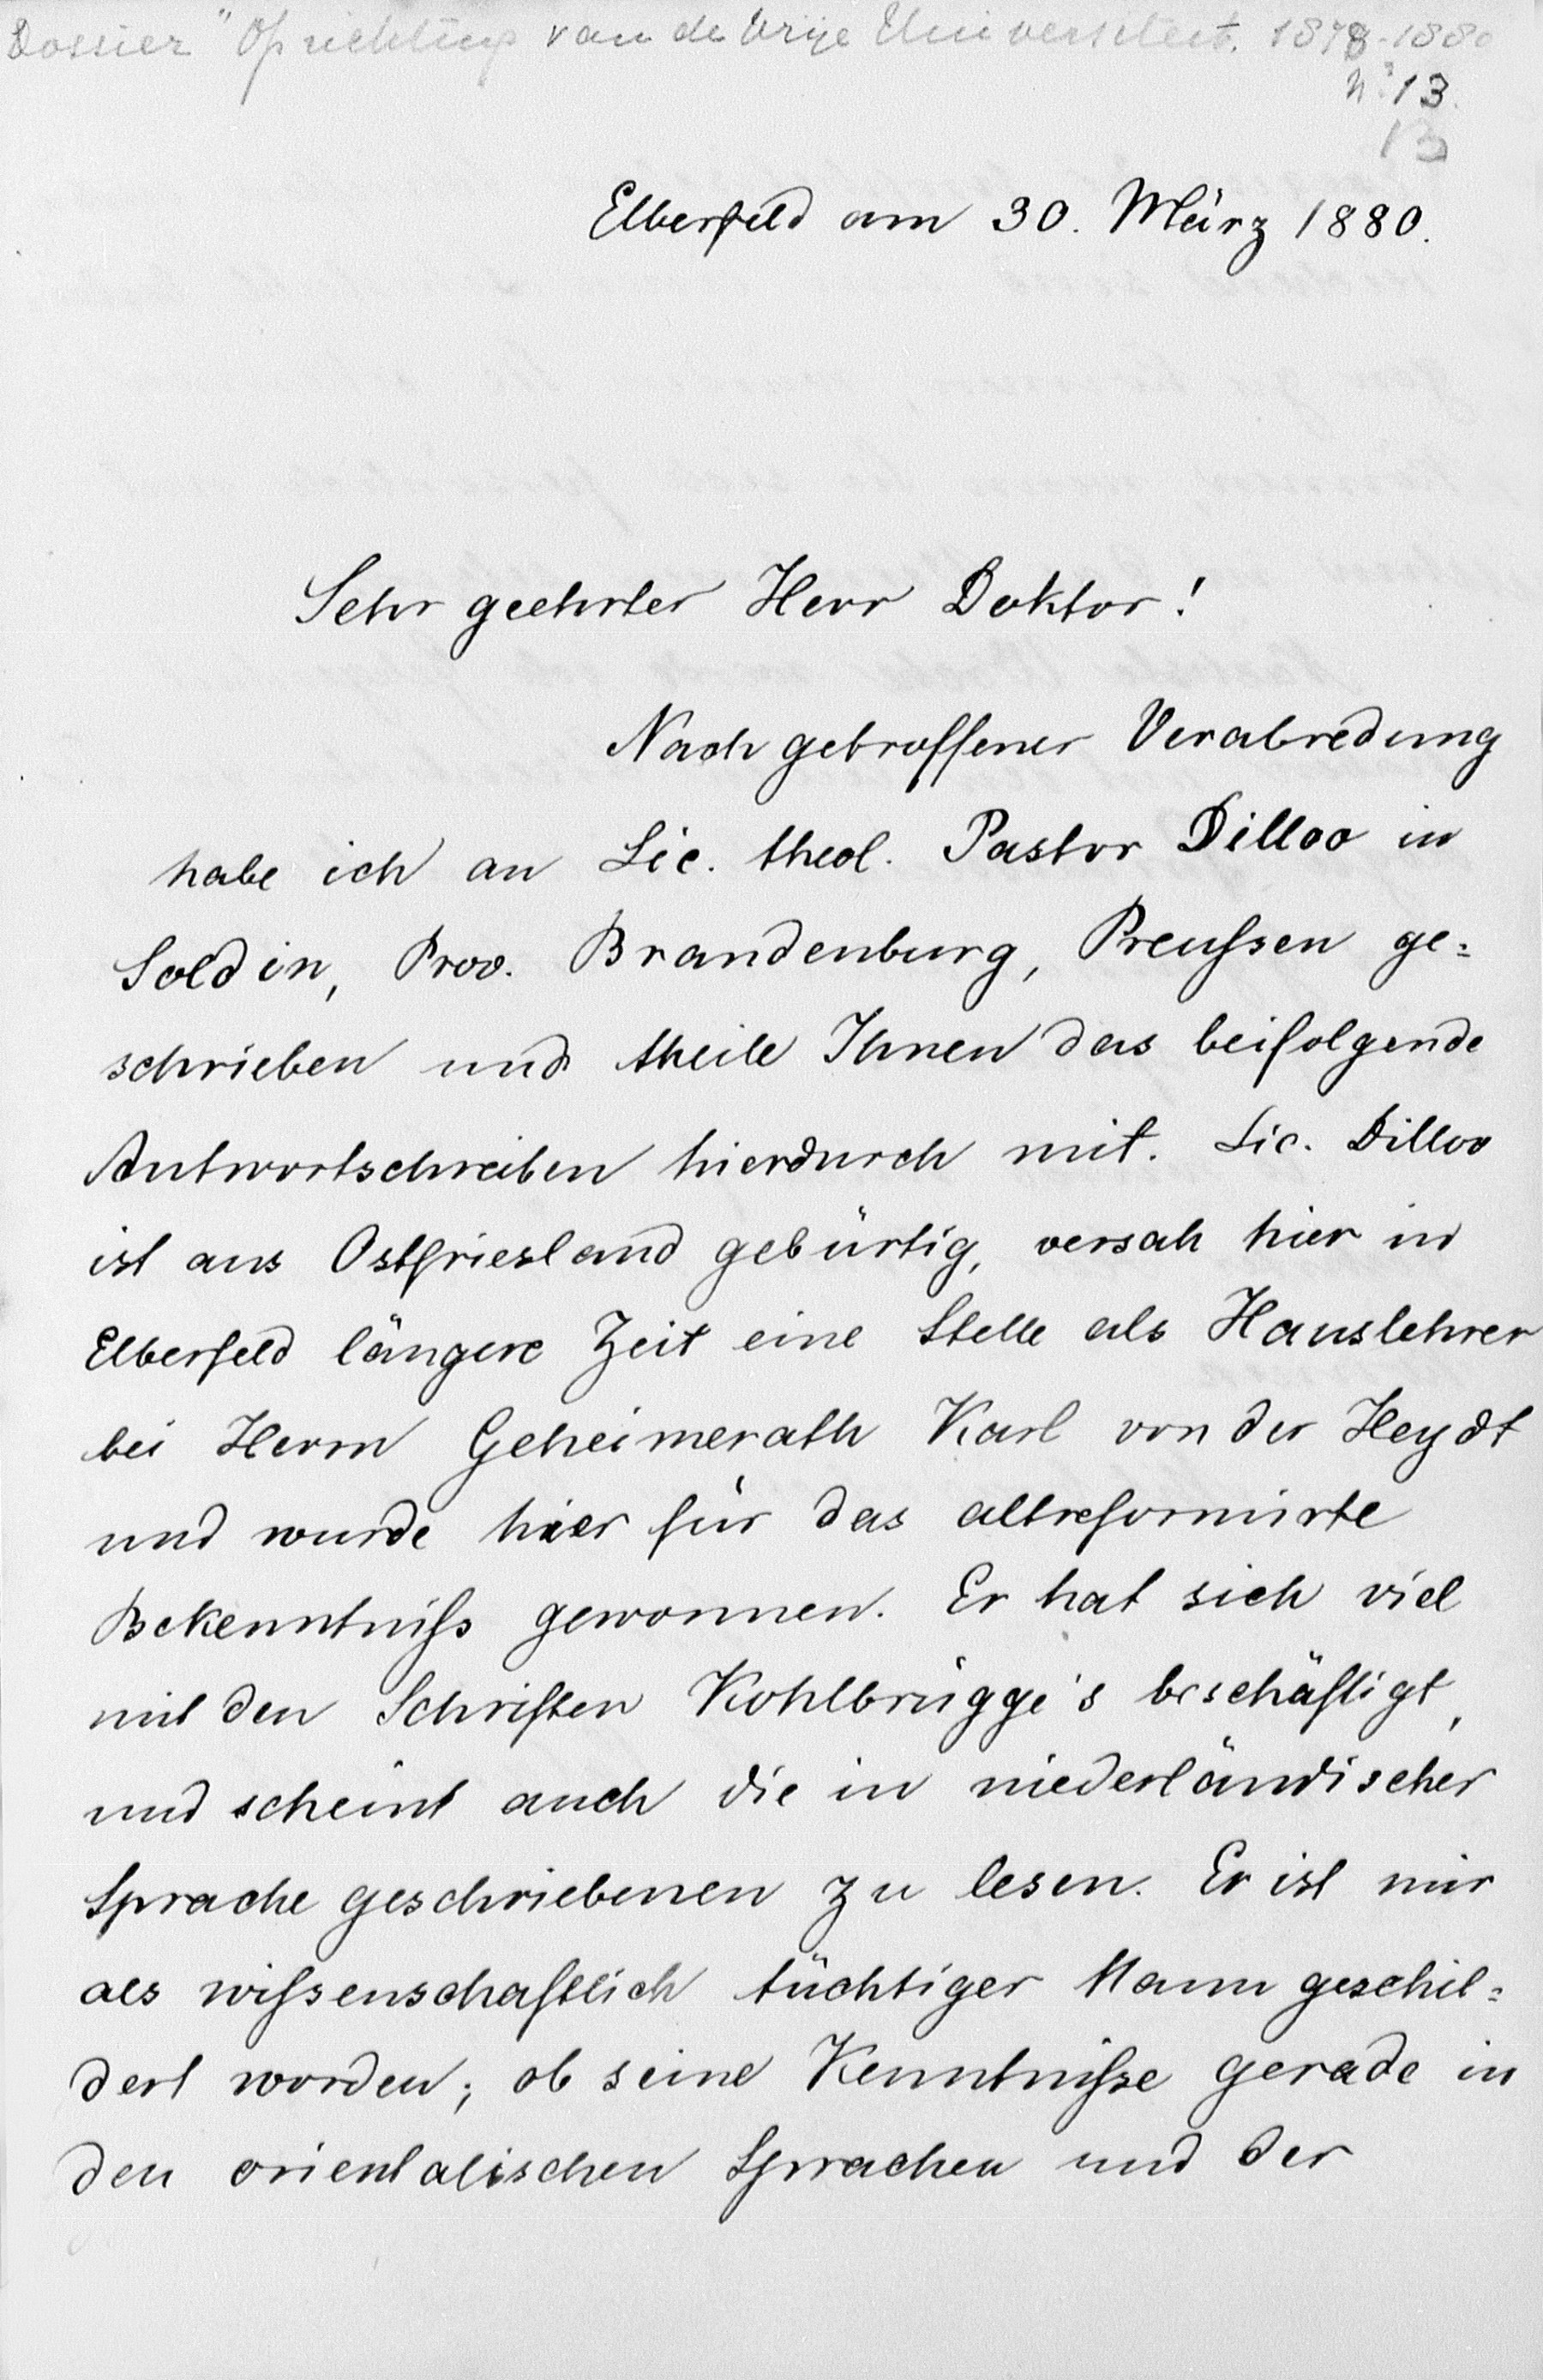 Dossier "Oprichting van de Vrije Universiteit. 1878-1880
No 13.
13
Elberfeld am 30. März 1880.
Sehr geehrter Herr Doktor!
Nach getroffener Verabredung
habe ich an Lic. theol. Pastor Dilloo in
Soldin, Prov. Brandenburg, Preußen ge=
schrieben und theile Ihnen das beifolgende
Antwortschreiben hierdurch mit. Lic. Dilloo
ist aus Ostfriesland gebürtig, versah hier in
Elberfeld längere Zeit eine Stelle als Hauslehrer
bei Herrn Geheimerath Karl von der Heydt
und wurde hier für das altreformirte
Bekenntniß gewonnen. Er hat sich viel
mit den Schriften Kohlbrügge's beschäftigt,
und scheint auch die in niederländischer
Sprache geschriebenen zu lesen. Er ist mir
als wißenschaftlich tüchtiger Mann geschil=
dert worden; ob seine Kenntniße gerade in
den orientalischen Sprachen und der